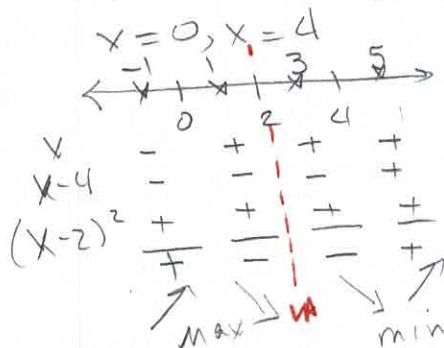 x = 0, x = 4
-1 1 3 5
0 2 4
x - + + +
x-4 - - - +
(x-2)² + + + +
+ - - +
max VA min